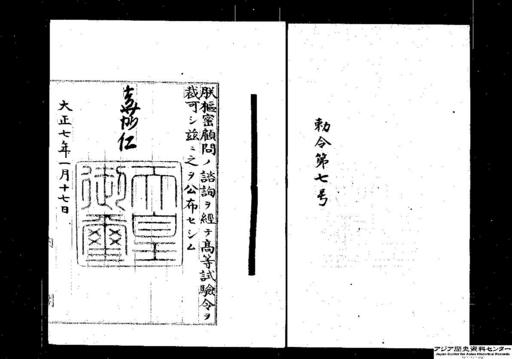 勅令第七号
朕樞密顧問ノ諮詢ヲ經テ高等試驗令ヲ
裁可シ玆ニ之ヲ公布セシム
嘉仁
天皇御璽
大正七年一月十七日
アジア歴史資料センター
Japan Center for Asian Historical Records